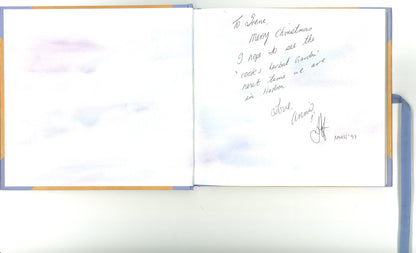 To Irene
Merry Christmas
I hope to see the
'rocks herbal Garden'
next time we are
in
Love
Annie
Xmas '97